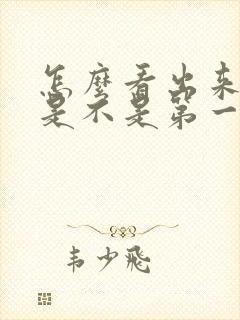 怎麼看出来
是不是第一
韦少飛